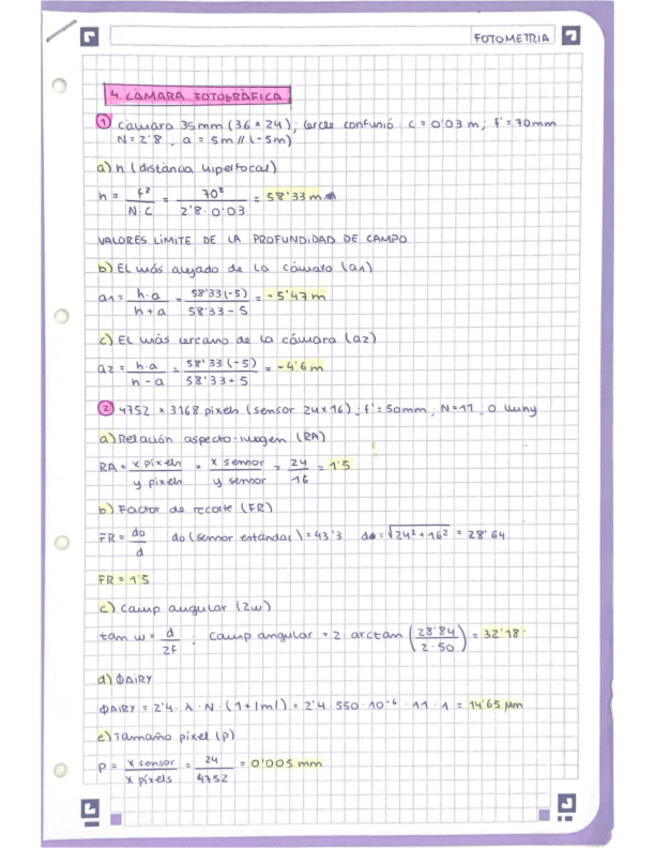 FOTOMETRIA
4. CÁMARA FOTOGRÀFICA
1 Càmara 35mm (36 x 24); cercle confunió c = 0'03 m; f' = 70mm
N = 2'8, a = 5m // (-5m)
a) h (distància hiperfocal)
h = f² / N·C = 70² / 2'8·0'03 = 58'33 m
VALORES LÍMITE DE LA PROFUNDIDAD DE CAMPO
b) El más alejado de la cámara (a1)
a1 = h·a / h + a = 58'33(-5) / 58'33 - 5 = -5'47 m
c) El más cercano de la cámara (a2)
a2 = h·a / h - a = 58'33 (-5) / 58'33 + 5 = -4'6 m
2 4752 x 3168 píxels (sensor 24x16); f' = 50mm; N=11, O lluny
a) Relación aspecto-imagen (RA)
RA = x píxels / y píxels = x sensor / y sensor = 24 / 16 = 1'5
b) Factor de recorte (FR)
FR = do / d do (sensor estándar) = 43'3 d = √24² + 16² = 28'64
FR = 1'5
c) Camp angular (2w)
tan w = d / 2F ; camp angular = 2·arctan (28'84 / 2·50) = 32'18·
d) ΦAIRY
ΦAIRY = 2'4·λ·N·(1+|m|) = 2'4·550·10⁻⁶·11·1 = 14'65 μm
e) Tamaño píxel (p)
p = x sensor / x píxels = 24 / 4752 = 0'005 mm